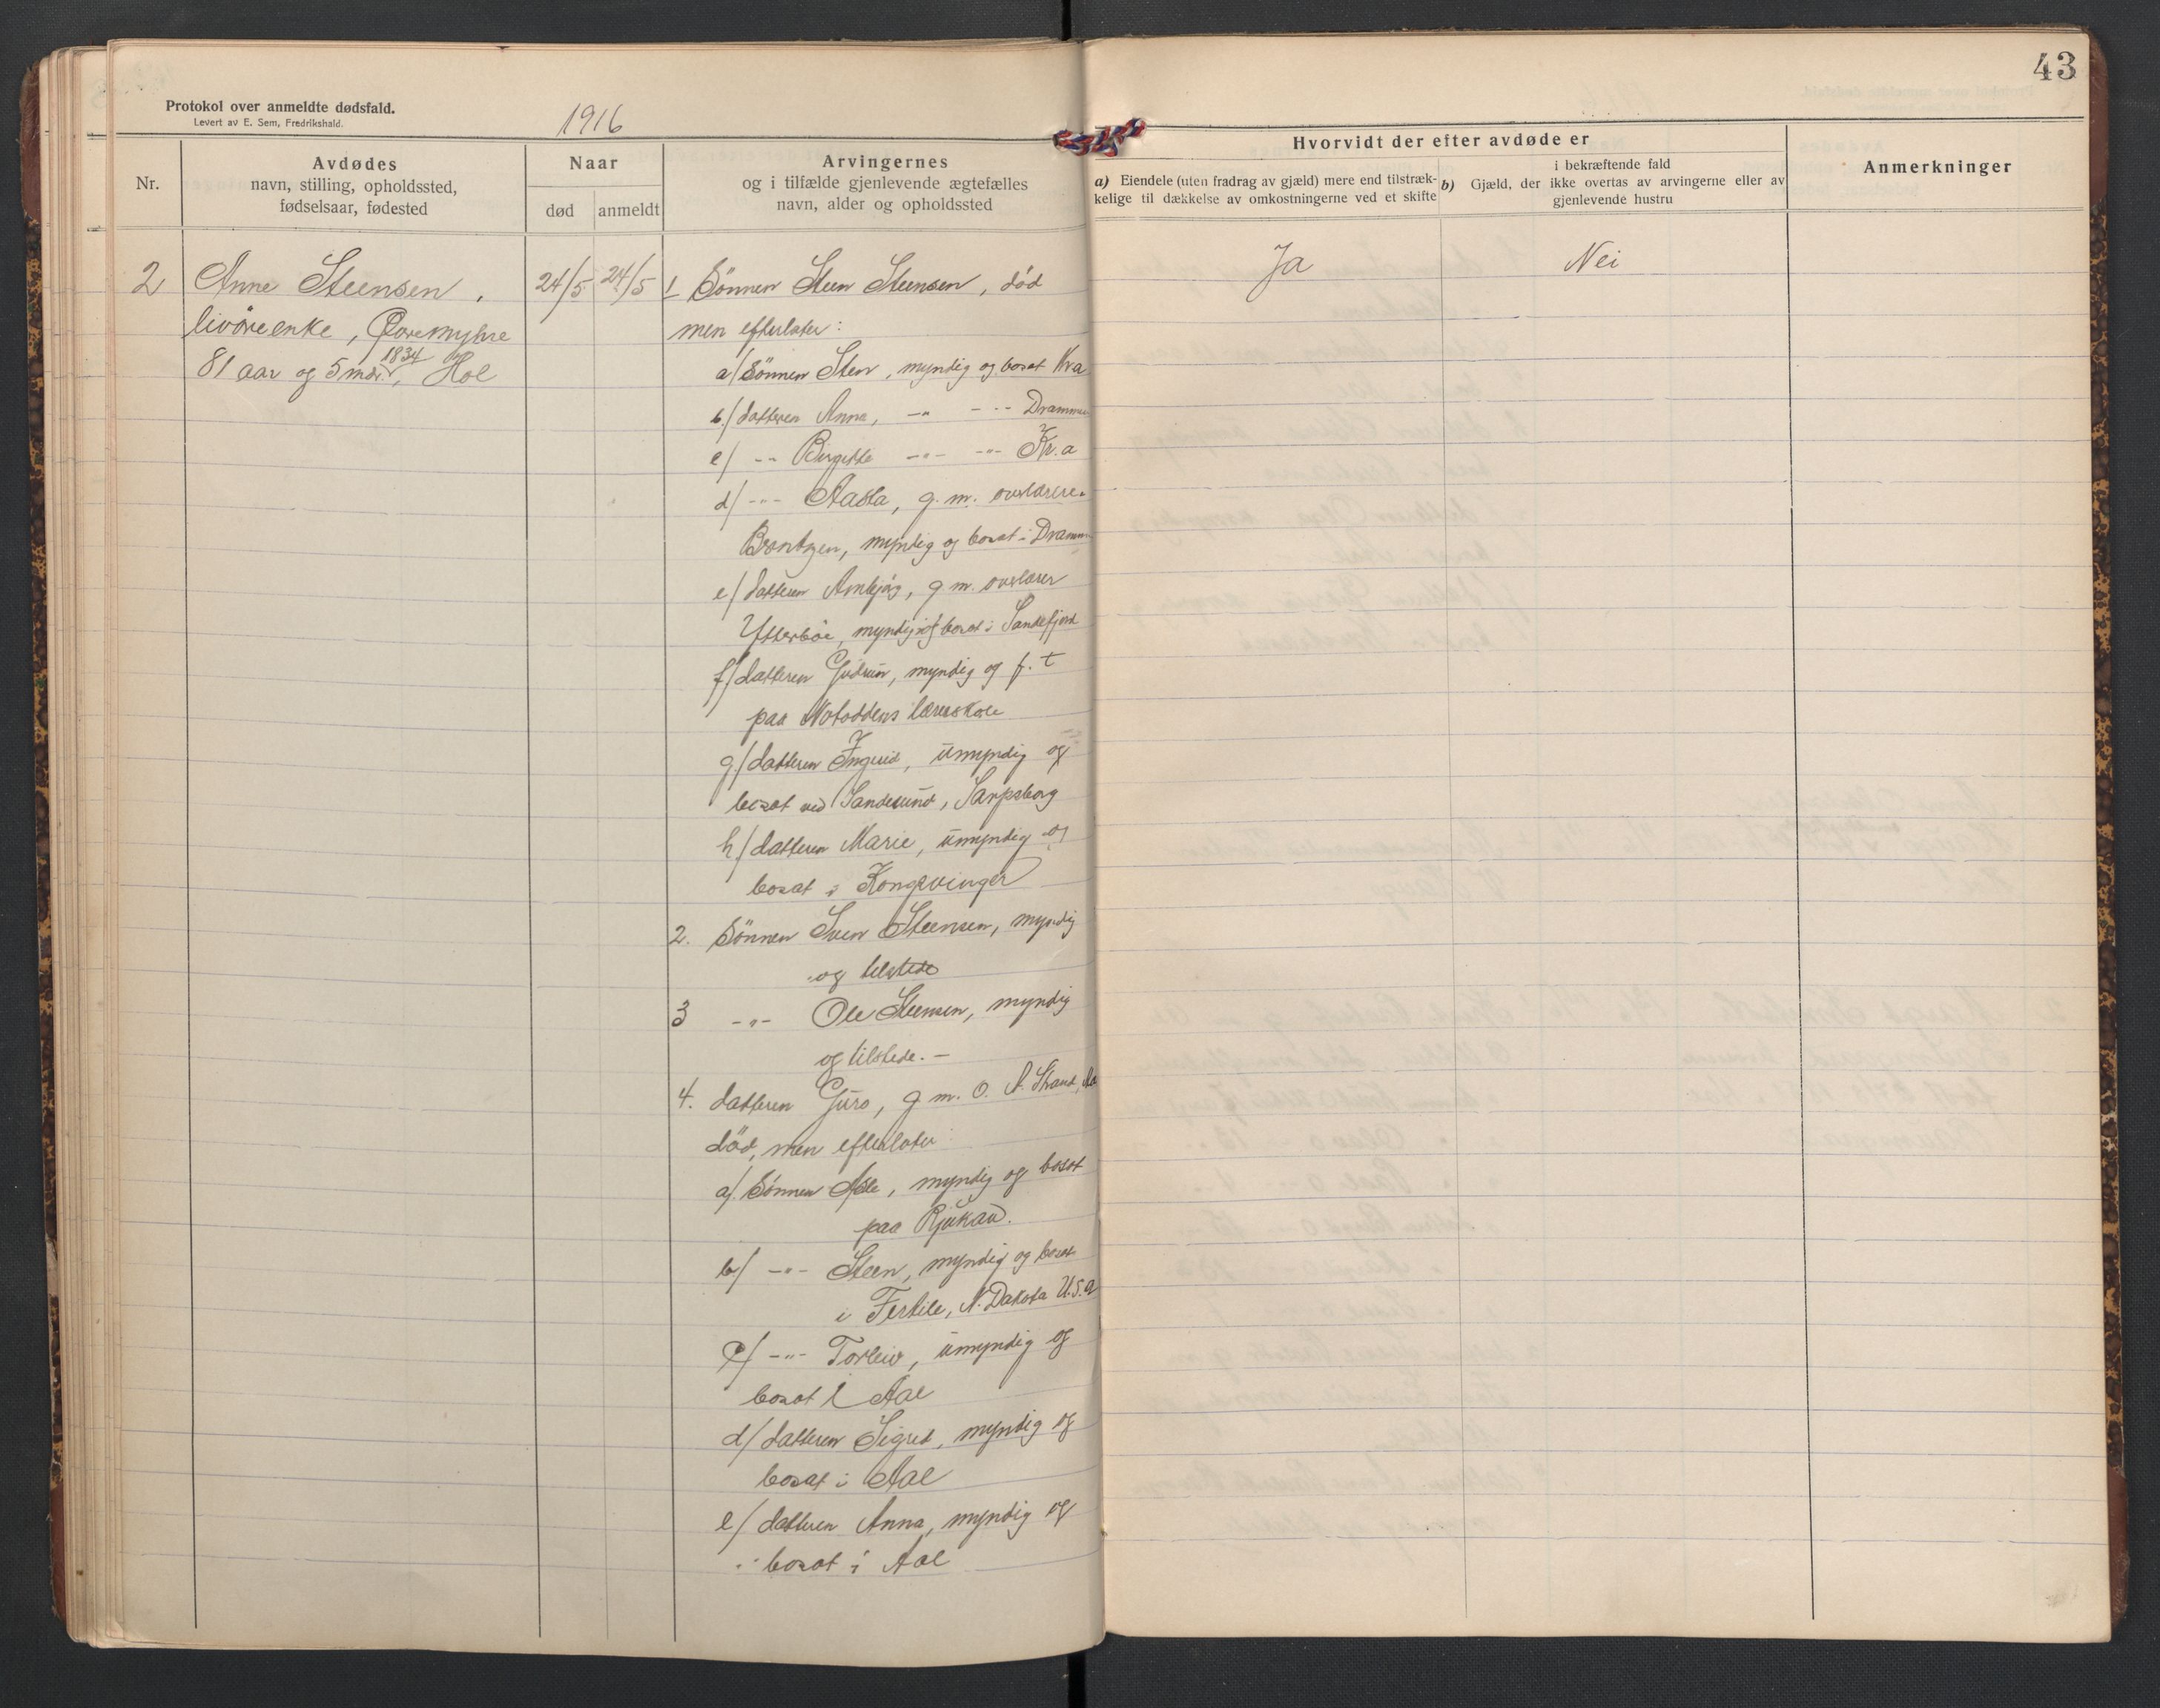 43
Protokol over anmeldte dødsfald.
Levert av E. Sem, Fredrikshald.
1916
Nr.
Avdødes
navn, stilling, opholdssted,
fødselsaar, fødested
Naar
død
anmeldt
Arvingernes
og i tilfælde gjenlevende ægtefælles
navn, alder og opholdssted
Hvorvidt der efter avdøde er
a) Eiendele (uten fradrag av gjæld) mere end tilstræk-
kelige til dækkelse av omkostningerne ved et skifte
i bekræftende fald
b) Gjæld, der ikke overtas av arvingerne eller av
gjenlevende hustru
Anmerkninger
2
Anne Steensen,
livöreenke, Øvremyhre
1834
81 aar og 5 mdr., Hol
24/5
24/5
1 Sönnen Steen Steensen, död
men efterlater:
a/ Sönnen Sten, myndig og bosat Kr.a
b./ datteren Anna, -"- -"- Drammen
c/ -"- Birgitte -"- -"- Kr.a
d/ -"- Aasta, g. m. overlærer
Berntzen, myndig og bosat i Drammen
e/ datteren Ambjög, g. m. overlærer
Ytterböe, myndig og bosat i Sandefjord
f/ datteren Gudrun, myndig og f. t
paa Notoddens lærerskole
g/ datteren Ingrid, umyndig og
bosat ved Sandesund, Sarpsborg
h./ datteren Marie, umyndig og
bosat i Kongsvinger
2. Sönnen Sven Steensen, myndig
og tilstede
3 -"- Ole Steensen, myndig
og tilstede. -
4. datteren Guro, g. m. O. A. Strand,
död, men efterlater
a/. Sönnen Asle, myndig og bosat
paa Rjukan.
b/ -"- Steen, myndig og bosat
i Fertile, N. Dakota U.S.a
c/ -"- Torleiv, umyndig og
bosat i Aal
d/ datteren Sigrid, myndig og
bosat i Aal
e/ datteren Anna, myndig og
bosat i Aal
Ja
Nei